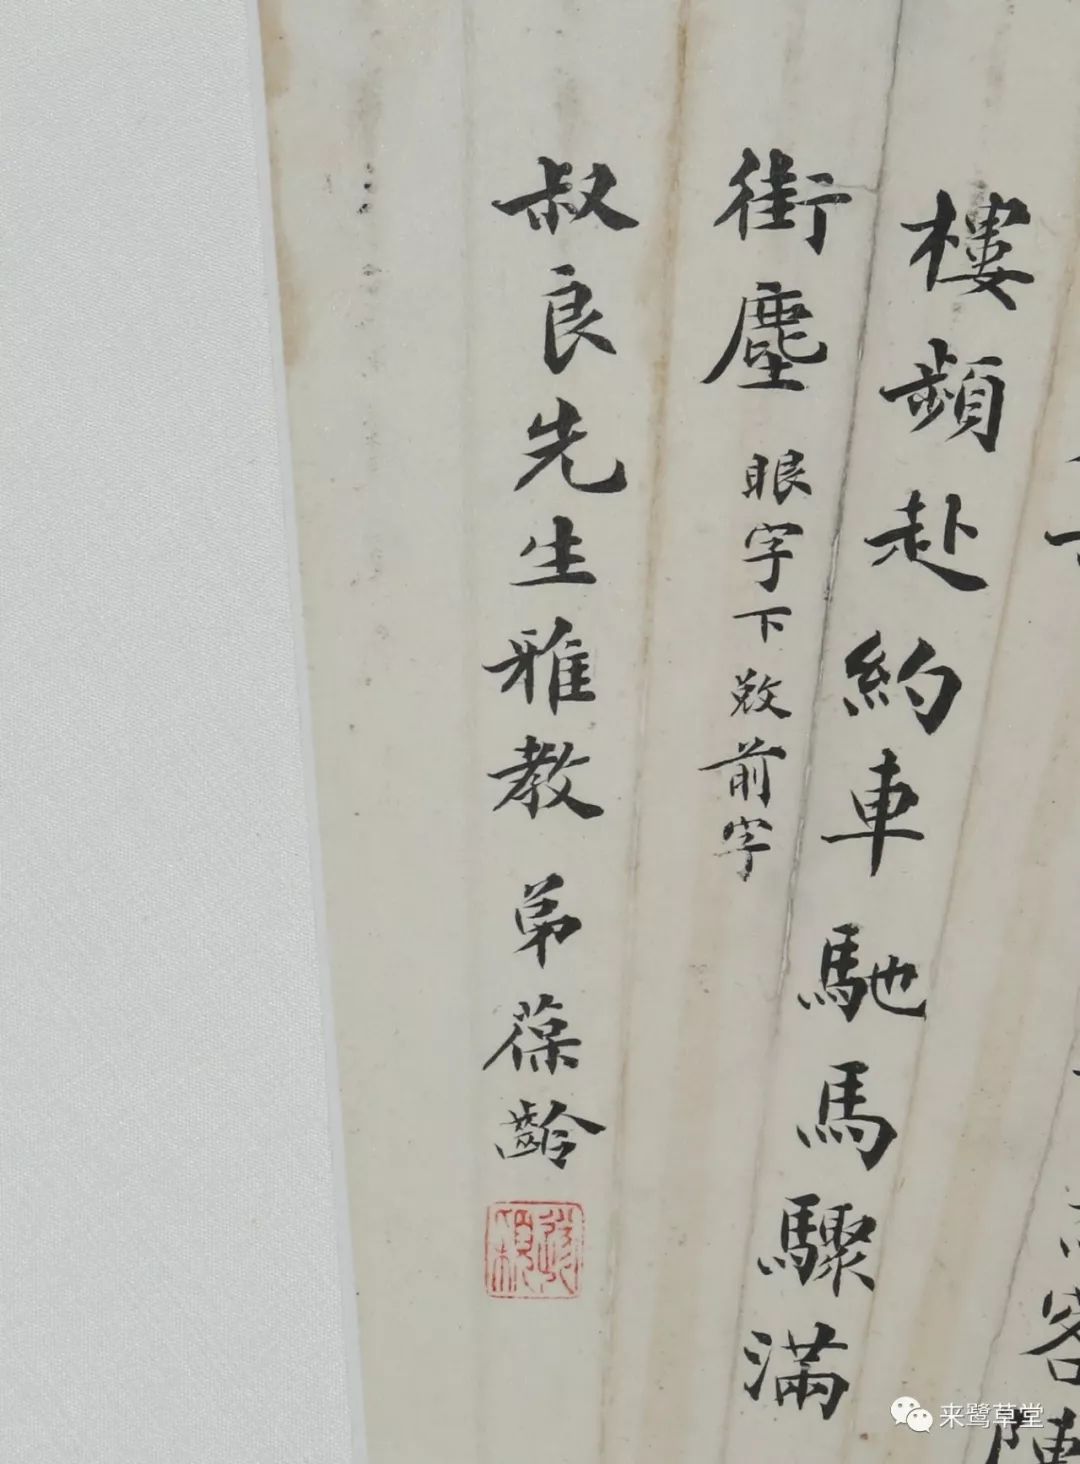 樓頻赴約車馳馬驟滿
街塵
眼字下敚前字
叔良先生雅教
弟葆齡
来鹭草堂